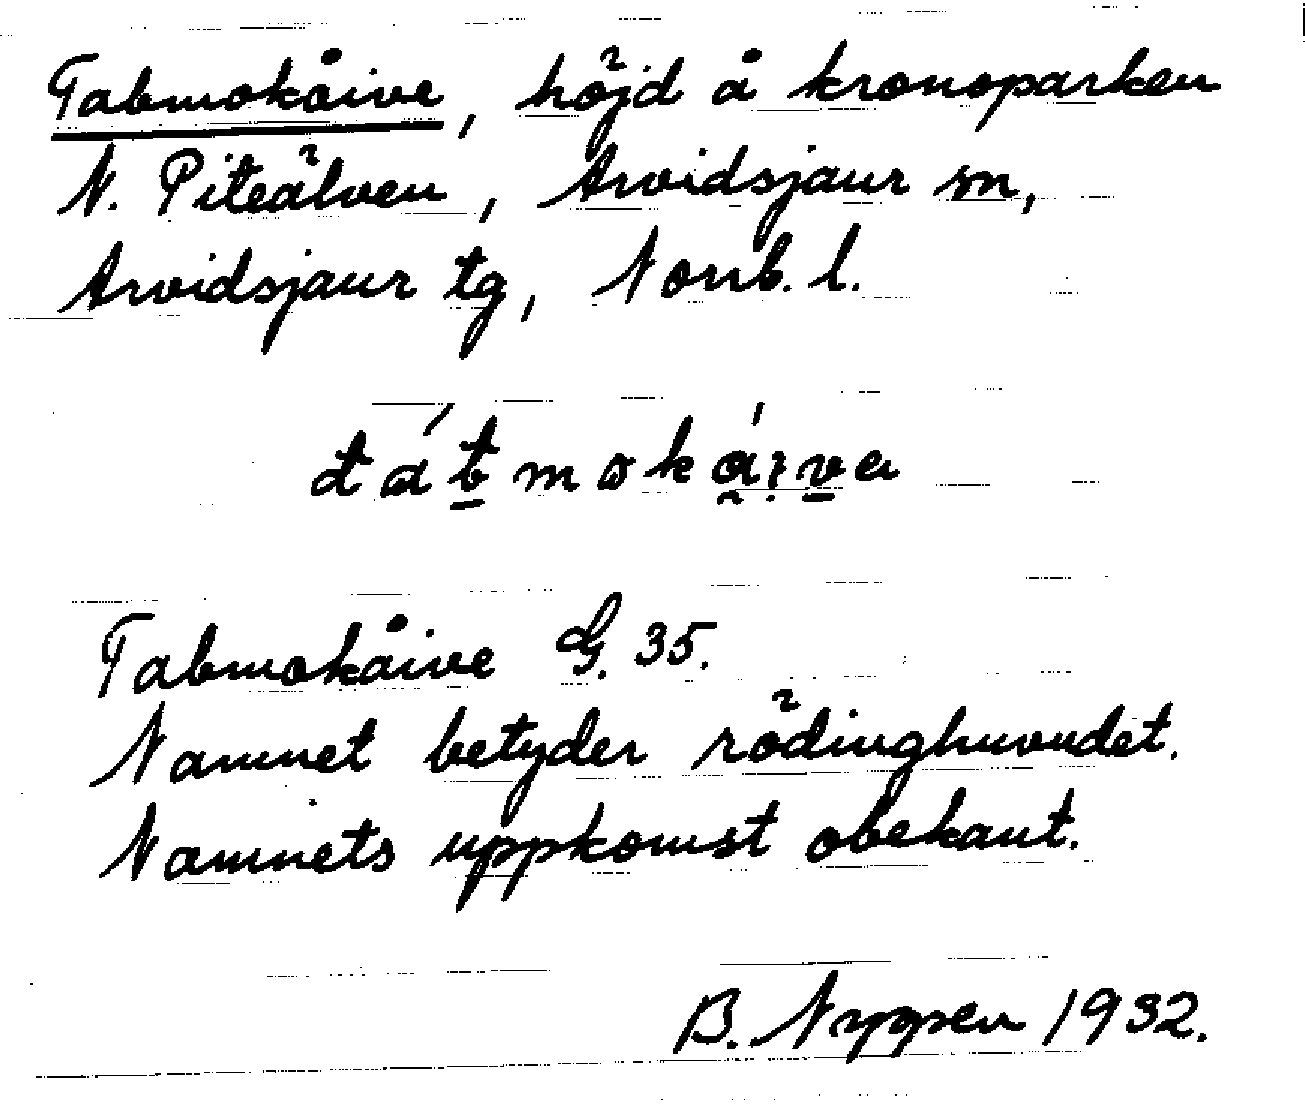 Tabmokåive, höjd å kronoparken
N. Piteälven, Arvidsjaur sn,
Arvidsjaur tg, Norrb. l.
Tabmokåive G. 35.
Namnet betyder rödinghuvudet.
Namnets uppkomst obekant.
B. Nygren 1932.